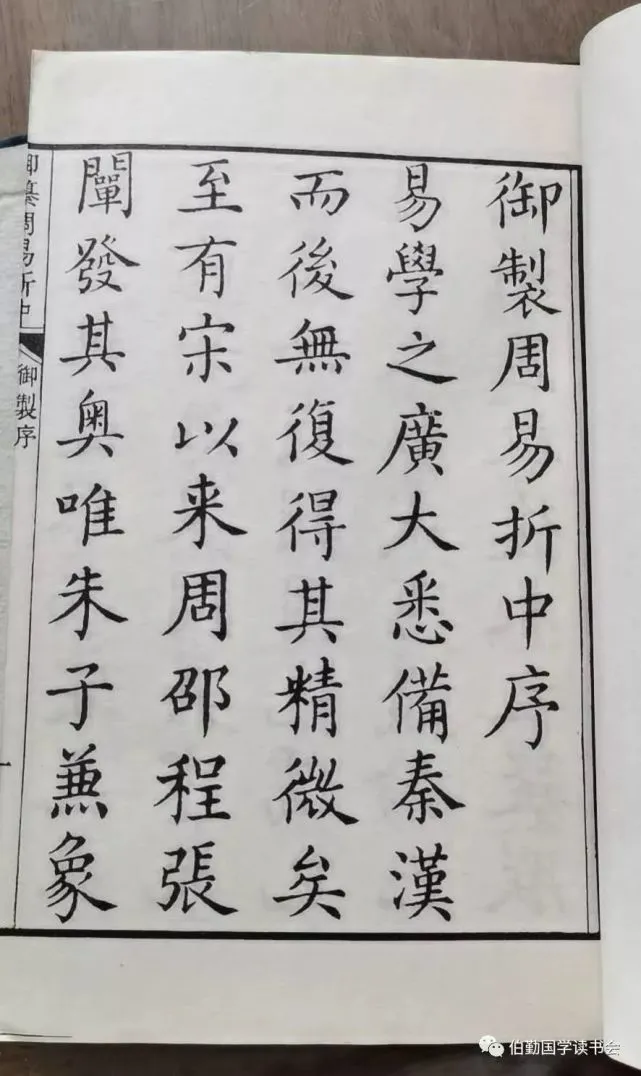 御製周易折中序
易學之廣大悉備秦漢
而後無復得其精微矣
至有宋以来周邵程張
闡發其奥唯朱子蕪象
御纂周易折中
御製序
伯勤国学读书会